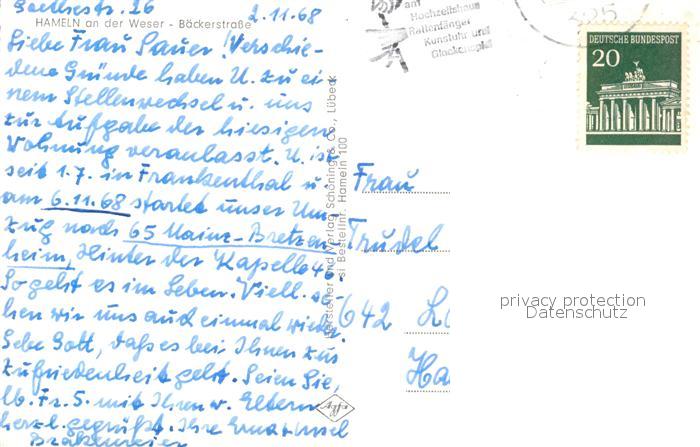 Goethestr. 26
HAMELN an der Weser - Bäckerstraße
2.11.68
Liebe Frau Sauer! Verschie-
dene Gründe haben U. zu ei
nem Stellenwechsel u. uns
zur Aufgabe der hiesigen
Wohnung veranlasst. U. ist
seit 1.7. in Frankenthal u.
am 6.11.68 startet unser Um
zug nach 65 Mainz-Bretzen
heim, Hinter der Kapelle 46.
So geht es im Leben. Viell. se-
hen wir uns auch einmal wieder.
Gebe Gott, dass es bei Ihnen zur
Zufriedenheit geht. Seien Sie,
lb. Fr. S. mit Ihren w. Eltern
herzl. gegrüßt. Ihre
am
Hochzeitshaus
Rattenfänger
Kunstuhr und
Glockenspiel
DEUTSCHE BUNDESPOST
20
Hersteller und Verlag Schöning & Co., Lübeck
Bestellnr. Hameln 100
Agfa
Frau
Trudel
642 L
Ha
privacy protection
Datenschutz